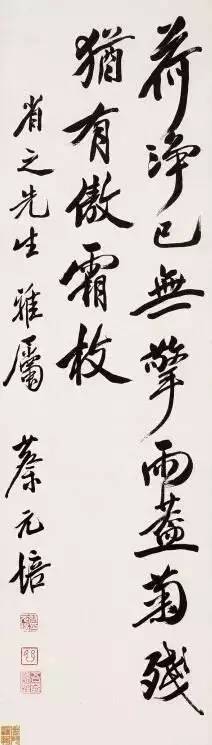 荷淨已無擎雨蓋菊殘
猶有傲霜枝
省之先生雅屬 蔡元培